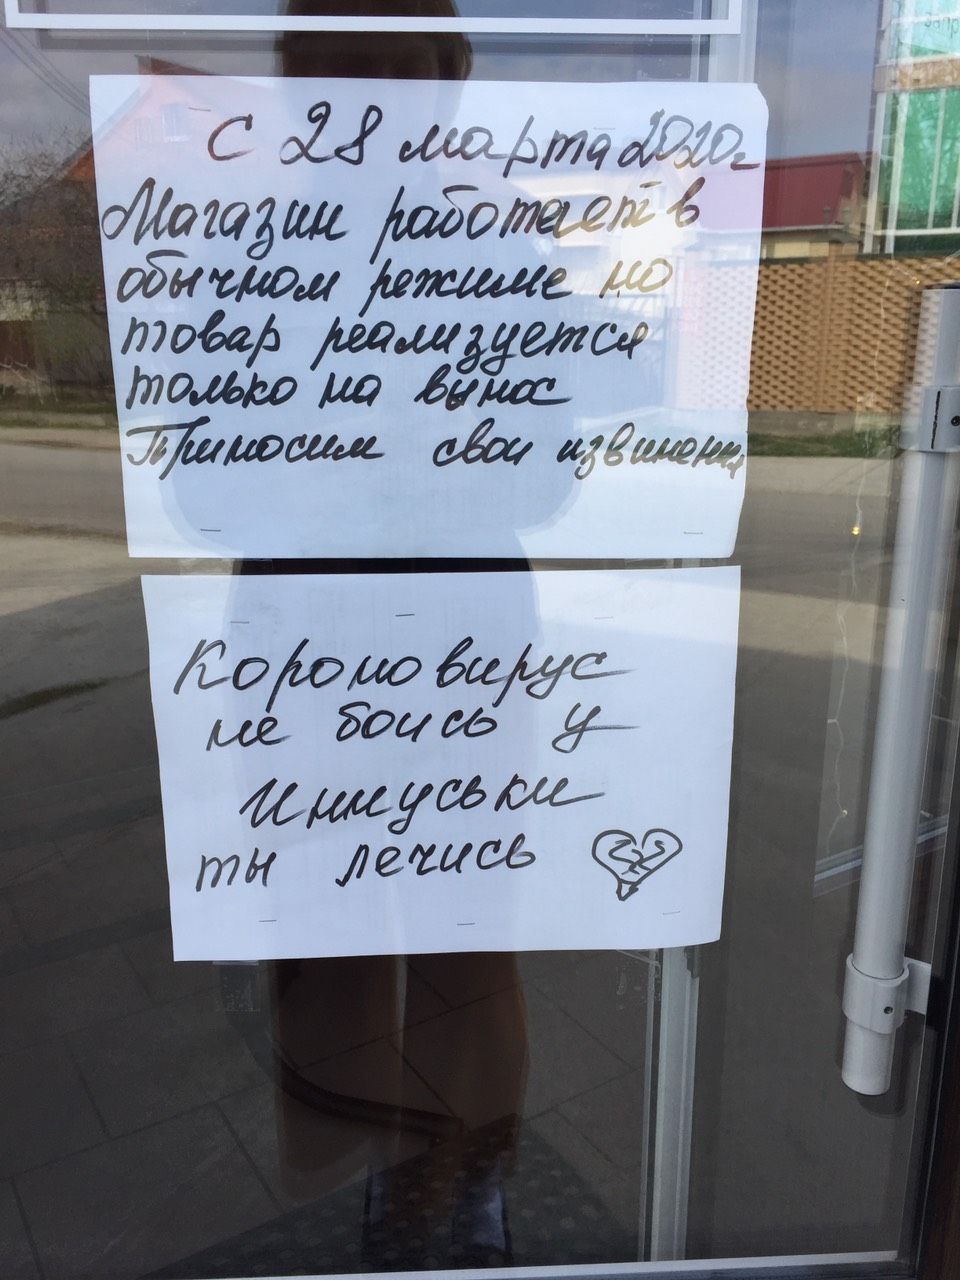 С 28 марта 2020г
Магазин работает в
обычном режиме но
товар реализуется
только на вынос
Приносим свои извинения
Короновирус
не боись у
Иннуськи
ты лечись